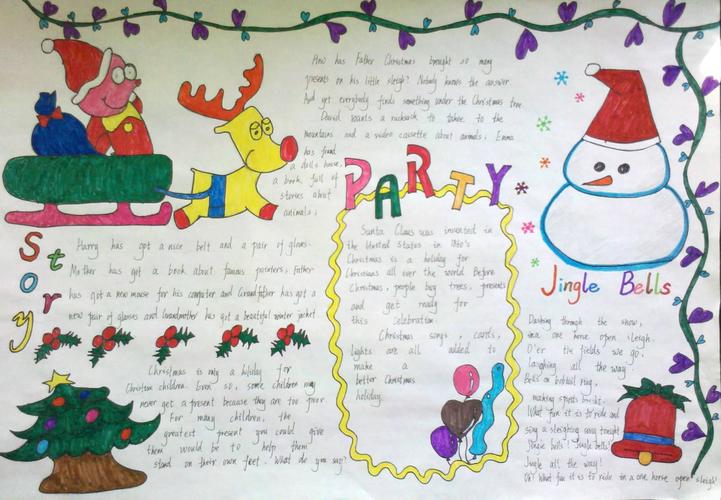 How has Father Christmas brought so many
presents on his little sleigh? Nobody knows the answer.
And yet everybody finds something under the Christmas tree.
David wants a rucksack to take to the
mountains and a video cassette about animals. Emma
has found
a doll's house,
a book full of
stories about
animals,
Story
Harry has got a nice belt and a pair of gloves.
Mother has got a book about famous painters, Father
has got a new mouse for his computer and Grandfather has got a
new pair of glasses and Grandmother has got a beautiful winter jacket
Christmas is only a holiday for
Christian children. Even so, some children may
never get a present because they are too poor
For many children, the
greatest present you could give
them would be to help them
stand on their own feet. What do you say?
PARTY
Santa Claus was invented in
the United States in 1860's
Christmas is a holiday for
Christians all over the world Before
Christmas, people buy trees, presents
and get ready for
this celebration.
Christmas songs, cards,
lights are all added to
make a
better Christmas
holiday.
Jingle Bells
Dashing through the snow,
in a one horse open sleigh.
O'er the fields we go,
Laughing all the way
Bells on bobtail ring,
making spirits bright.
What fun it is to ride and
sing a sleighing song tonight
Jingle bells! Jingle bells!
Jingle all the way!
Oh! What fun it is to ride in a one horse open sleigh!